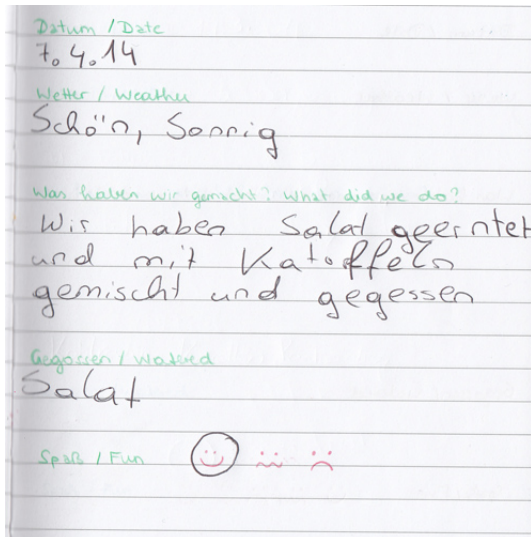 Datum / Date
7.4.14
Wetter / Weather
Schön, Sonnig
Was haben wir gemacht? What did we do?
Wir haben Salat geerntet
und mit Katoffeln
gemischt und gegessen
Gegossen / Watered
Salat
Spaß / Fun